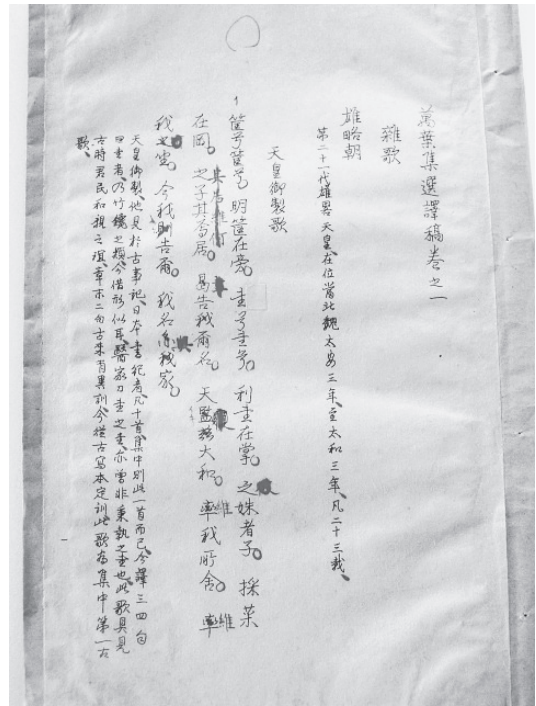 萬葉集選譯稿卷之一
雜歌
雄略朝
第二十一代雄畧天皇、在位當北魏太安三年、至太和三年、凡二十三載、
天皇御製歌
1 筐兮筐兮。明筐在旁。圭兮圭兮。利圭在掌。之姝者子。採菜
在岡。之子其焉居。曷告我爾名。天監茲大和。維率我所舍。維率
我之寍。今我則告爾。我名亦我家。
天皇御製、他見於古事記、日本書紀者、凡十首、集中別此一首而已、今譯三四句
曰圭者、乃竹鑱之類、今借形似耳、醫家刀圭之圭、亦曾非秉執之圭也、此歌具見
古時君民和親之淇、章末二句古來有異訓、今從古寫本定訓、此歌為集中第一古
歌、